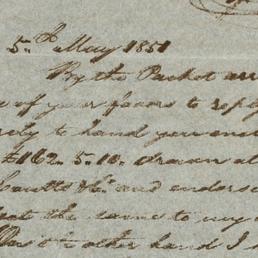 5th May 1851
By the Packet arr
e of your favors to reply
to hand you en
£162.5.10. drawn at
Coutts & Co. and endorse
the same to my
other hand I